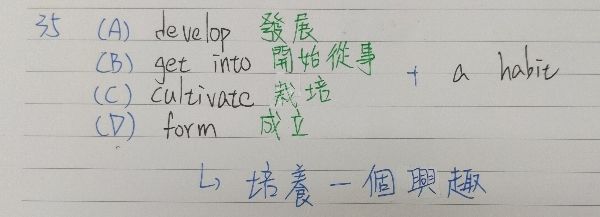 35 (A) develop 發展
(B) get into 開始從事
(C) cultivate 栽培 + a habit
(D) form 成立
↳ 培養一個興趣